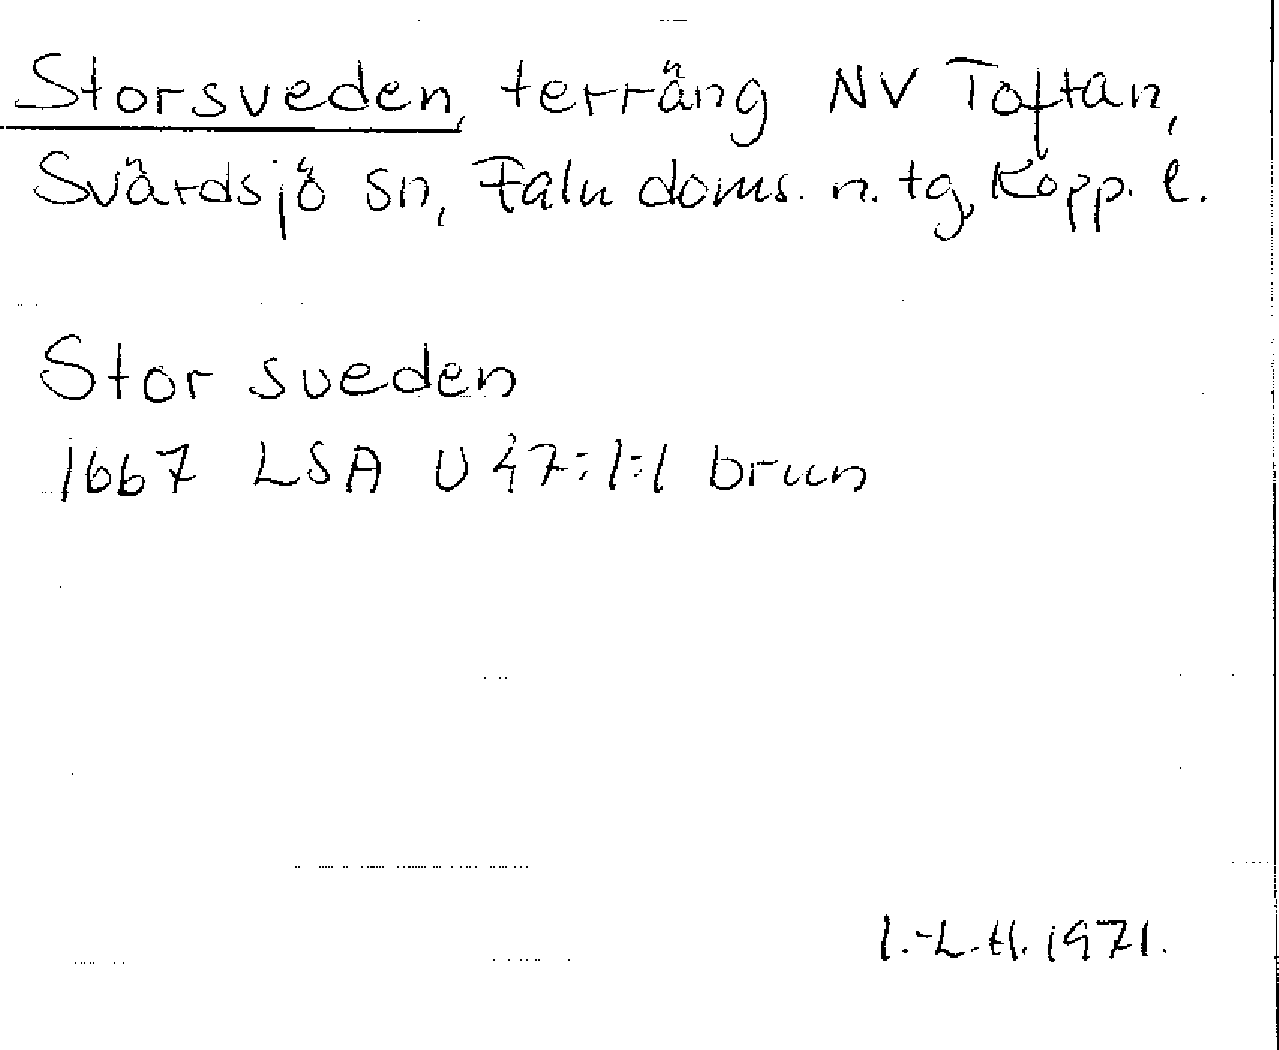 Storsveden, terräng NV Toftan,
Svärdsjö sn, Falu doms. n. tg, Kopp. l.
Stor sveden
1667 LSA U 47:1:1 brun
I.-L.H. 1971.